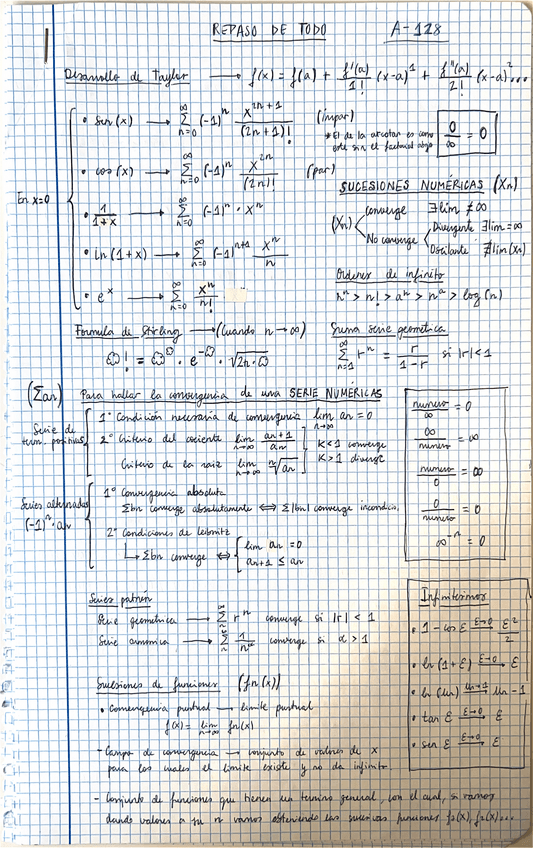 REPASO DE TODO
A-128
Desarrollo de Taylor → f(x) = f(a) + f'(a)/1! (x-a)^1 + f''(a)/2! (x-a)^2 ...
En x=0
• sen(x) → ∑_{n=0}^∞ (-1)^n x^{2n+1}/(2n+1)! (impar)
* El de la arcotan es como este sin el factorial abajo
0/∞ = 0
• cos(x) → ∑_{n=0}^∞ (-1)^n x^{2n}/(2n)! (par)
• 1/(1+x) → ∑_{n=0}^∞ (-1)^n · x^n
• ln(1+x) → ∑_{n=0}^∞ (-1)^{n+1} x^n/n
• e^x → ∑_{n=0}^∞ x^n/n!
SUCESIONES NUMÉRICAS (Xn)
(Xn) converge ∃lim ≠ ∞
No converge
Divergente ∃lim = ∞
Oscilante ∄lim(Xn)
Ordenes de infinito
n^n > n! > a^n > n^a > log(n)
Formula de Stirling → (Cuando n→∞)
∞! = ∞^∞ · e^{-∞} · √(2π·∞)
Suma serie geométrica
∑_{n=1}^∞ r^n = r/(1-r) si |r|<1
(∑an) Para hallar la convergencia de una SERIE NUMÉRICAS
Serie de term. positivos
1° Condición necesaria de convergencia lim_{n→∞} an = 0
2° Criterio del cociente lim_{n→∞} an+1/an
Criterio de la raiz lim_{n→∞} ⁿ√an
K<1 converge
K>1 diverge
Series alternadas (-1)^n · an
1° Convergencia absoluta
∑bn converge absolutamente ⟺ ∑|bn| converge incondic.
2° Condiciones de leibnitz
↳ ∑bn converge ⟺
lim an = 0
an+1 ≤ an
numero/∞ = 0
∞/numero = ∞
numero/0 = ∞
0/numero = 0
∞^{-n} = 0
Series patrón
Serie geometrica → ∑_n^∞ r^n converge si |r| < 1
Serie armonica → ∑_n^∞ 1/n^α converge si α > 1
Infinitesimos
• 1 - cos ε ε→0 ε²/2
• ln(1+ε) ε→0 ε
• ln(un) un→1 un - 1
• tan ε ε→0 ε
• sen ε ε→0 ε
Sucesiones de funciones (fn(x))
• Convergencia puntual → limite puntual
f(x) = lim_{n→∞} fn(x)
- Campo de convergencia → conjunto de valores de x
para los cuales el limite existe y no da infinito.
- Conjunto de funciones que tienen un termino general, con el cual, si vamos
dando valores a su n vamos obteniendo las sucesivas funciones f1(x), f2(x)...